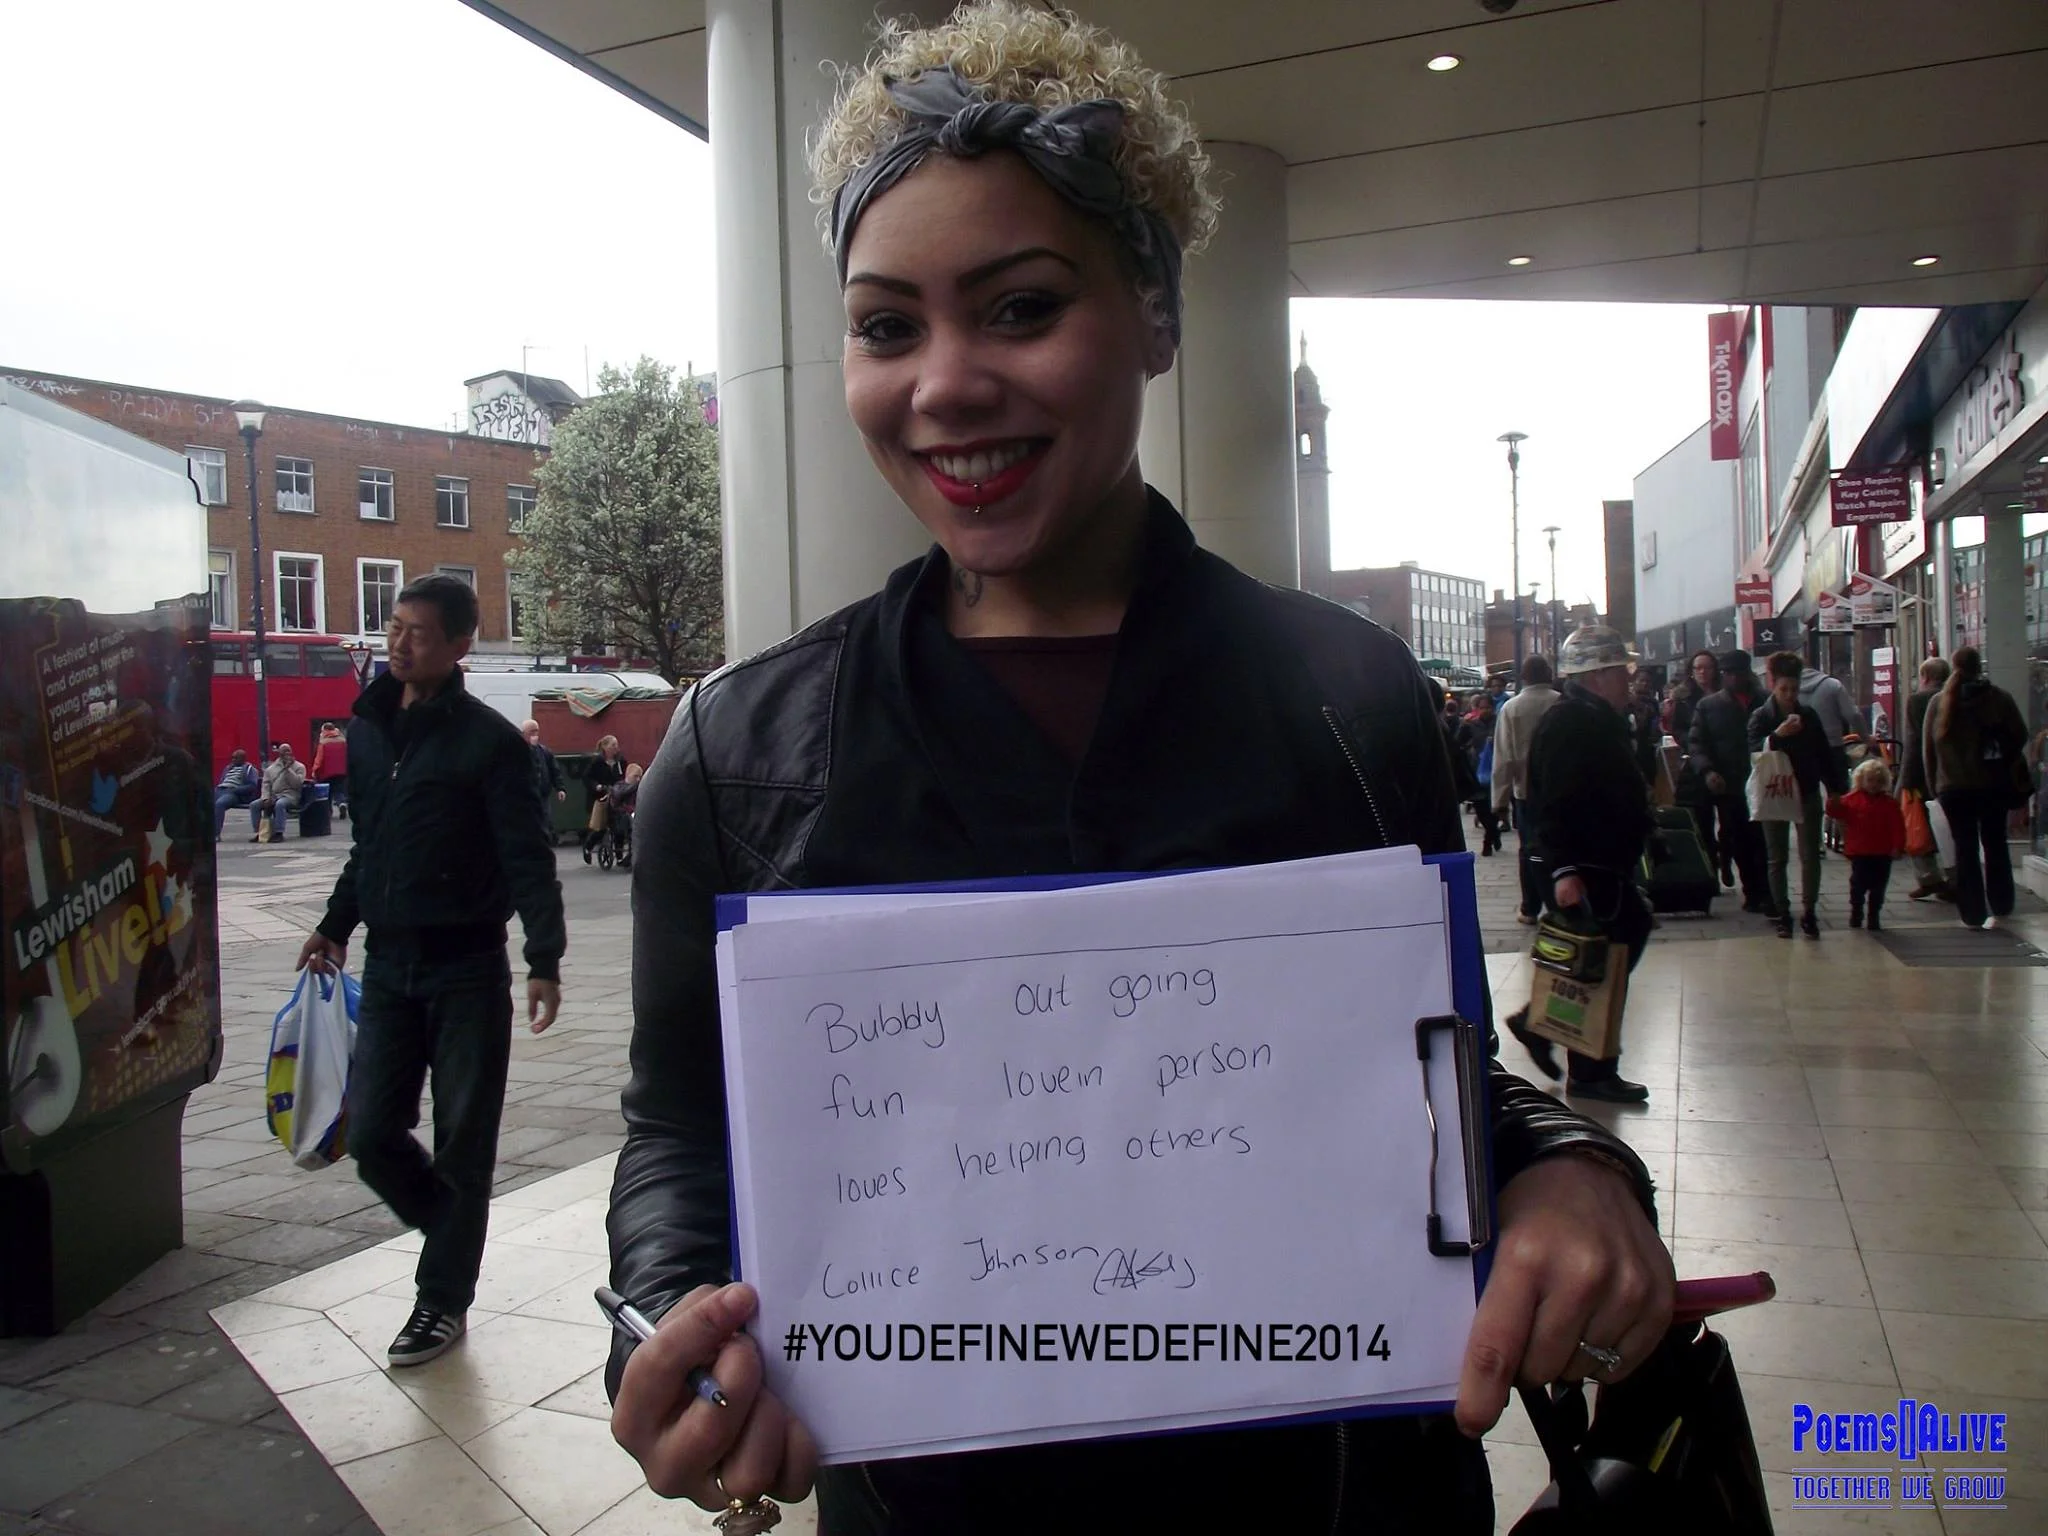 Bubbly out going
fun lovein person
loves helping others
Collice Johnson
#YOUDEFINEWEDEFINE2014
POEMS ALIVE
TOGETHER WE GROW
A festival of music
and dance from the
young people
of Lewisham
Lewisham
Live!
T.K.maxx
Shoe Repairs
Key Cutting
Watch Repairs
Engraving
H&M
100%
GIVE